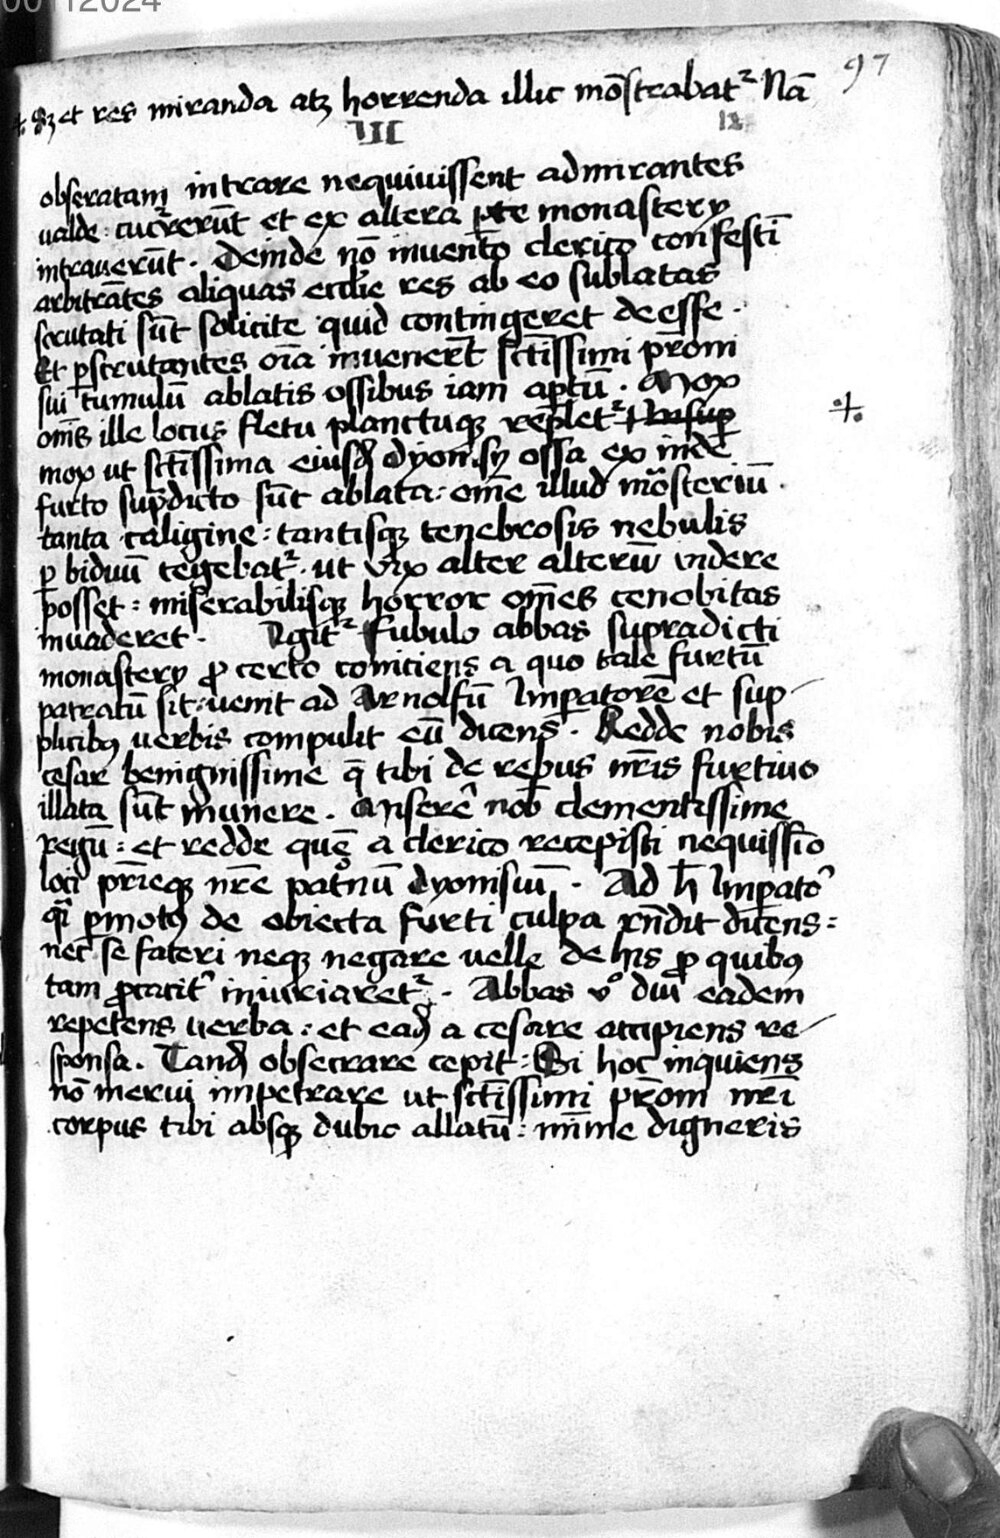 00112024
97
·/· Sꝫ et res miranda atqꝫ horrenda illic mōstrabat᷑ Nā
VII
obseratam intrare nequiuissent admirantes
ualde : cucrrerūt et ex altera ꝑte monastery
intrauerūt . Deinde nō inuento clerico confestī
arbitrātes aliquas ecclīe res ab eo sublatas
scrutati sūt solicite quid contingeret deesse .
Et ꝑscrutantes oīa inuenerūt sctīssimi pr̄oni
sui tumulū ablatis ossibus iam aꝑtū . Mox
om̄s ille locus fletu planctuqꝫ replet᷑ Insuꝑ
mox ut sctīssima eiusdꝫ dyonisy ossa ex inde
furto sup̄dicto sūt ablata : om̄e illud mōsteriū .
tanta caligine : tantisqꝫ tenebrosis nebulis
ꝑ biduū tegebat᷑ . ut vix alter alterū videre
posset : miserabilisqꝫ horror om̄es cenobitas
inuaderet . Igit᷑ Fubulo abbas supradicti
monastery ꝓ certo coniciens a quo tale furtū
patratū sit : uenit ad Arnolfū Imꝑatorē et sup
plicibꝯ uerbis compulit eū dicens . Redde nobis
cesar benignissime q̄ tibi de rebus nr̄is furtiuo
illata sūt munere . Miserē nob̄ clementissime
regū : et redde quē a clerico recepisti nequissīo
loci pr̄ieqꝫ nr̄e patͦnū dyonisiū . Ad h̄ Imꝑatoᷣ
qͥ ꝑmotꝯ de obiecta furti culpa rn̄dit dicens :
nec se fateri neqꝫ negare uelle de his ꝓ quibꝯ
tam ꝓcacitᷣ iniuriaret᷑ . Abbas vͦ diu eadem
repetens uerba : et eadꝫ a cesare accipiens re
sponsa . Tandꝫ obsecrare cepit : Si hoc inquiens
nō merui impetrare ut sctīssimi pr̄oni nr̄i
corpus tibi absqꝫ dubio allatū : mīme digneris